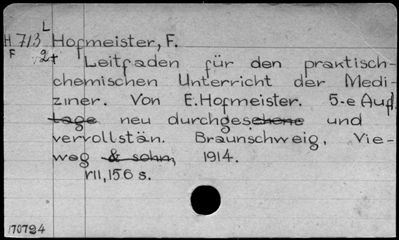 L
H 713 Hofmeister, F.
F 2t Leitfaden für den praktisch-
chemischen Unterricht der Medi-
ziner. Von E. Hofmeister. 5-e Aufl.
tage neu durchgesehene und
vervollstän. Braunschweig, Vie-
weg & sohn, 1914.
VII, 156 s.
170724